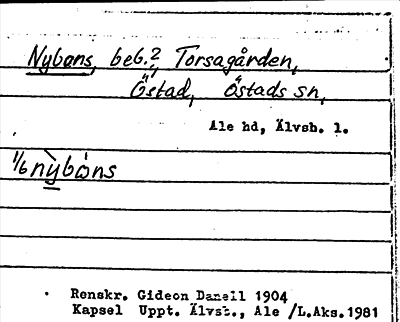 Nybans, beb.?, Torsagården,
Östad, Östads sn,
Ale hd, Älvsb. l.
1/6 nỳbàns
Renskr. Gideon Danell 1904
Kapsel Uppt. Älvsb., Ale /L.Aks.1981